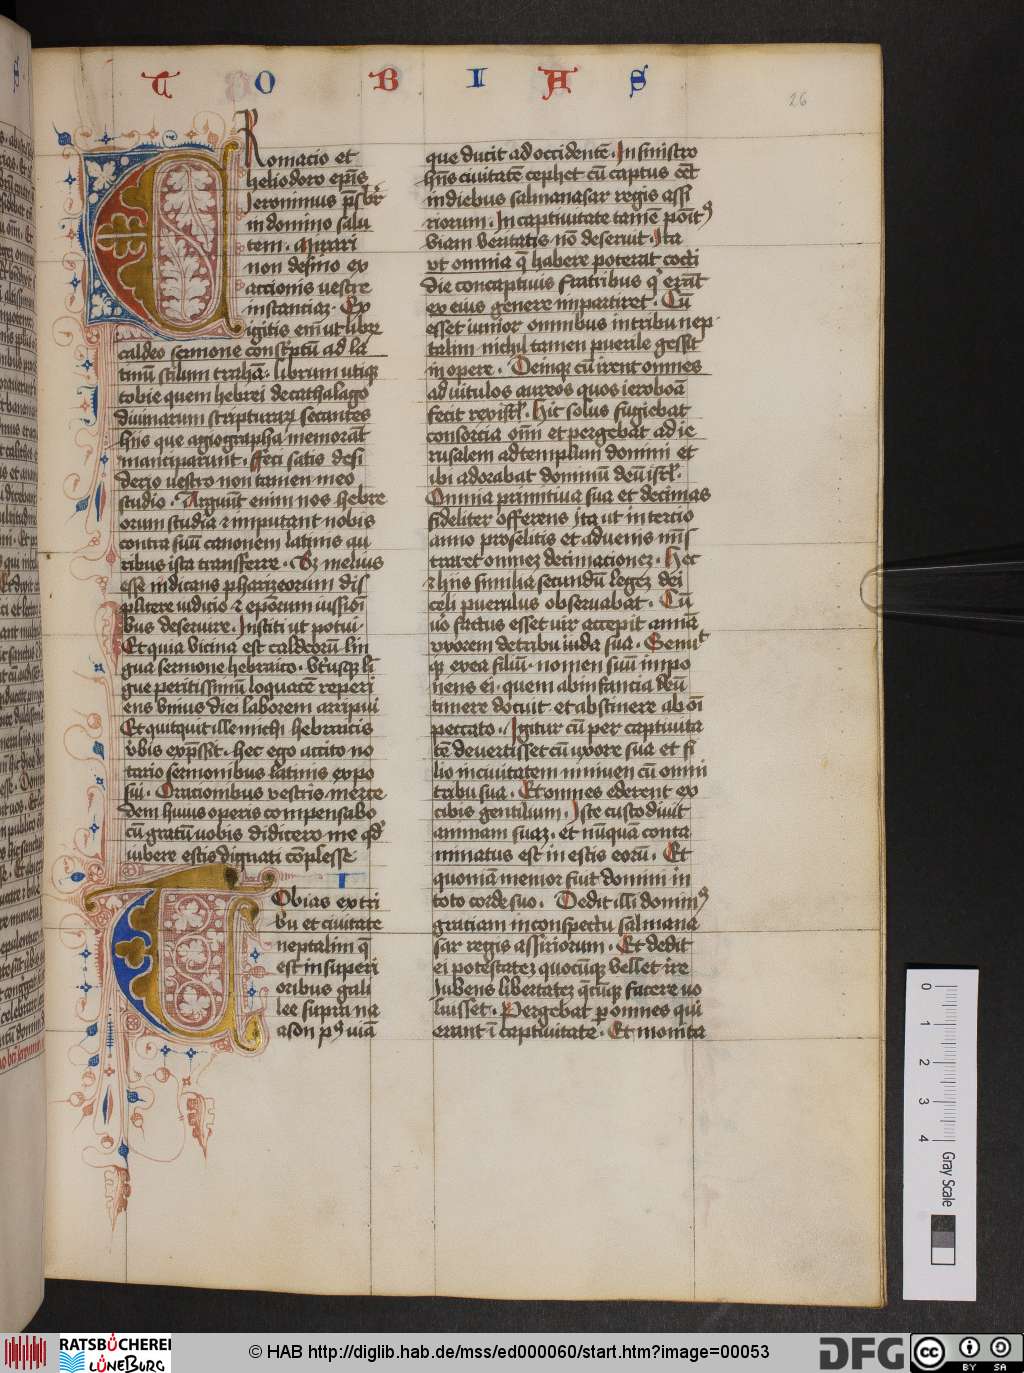 TOBIAS
26
Romacio et
heliodoro ep̄is
Jeronimus p̄sbr̄
in domino salu
tem . Mirari
non desino ex
actionis vestre
instanciaꝫ . Ex
igitis enī ut librū
caldeo sermone conscriptū ad la
tinū stilum trahā . librum utiqꝫ
tobie quem hebrei de cathalago
divinarum scripturaꝝ secantes
hiis que agiographa memorāt
manciparunt . Feci satis desi
derio vestro non tamen meo
studio . Arguūt enim nos hebre
orum studia ⁊ imputant nobis
contra suū canonem latinis au
ribus ista transferre . Sꝫ melius
esse iudicans pharizeorum dis
plicere iudicio ⁊ ep̄orum iussioī
bus deservire . Institi ut potui
Et quia vicina est caldeorū lin
gua sermone hebraico . utriusqꝫ lī
gue peritissimū loquacē reperi
ens vnius diei laborem arripui
Et quitquit ille michi hebraicis
v̄bis exp̄ssit . hec ego accito no
tario sermonibus latinis expo
sui . Oracionibus vestris merce
dem huius operis compensabo
cū gratū uobis didicero me qd̄
iubere estis dignati cōplesse
I
Obias ex tri
bu et civitate
neptalim q̄
est in superi
oribus gali
lee supra na
ason p9 uiā
que ducit ad occidentē . In sinistro
hn̄s civitatē cephet cū captus eēt
in diebus salmanasar regis assi
riorum . In captivitate tamē poīt9
viam veritatis nō deseruit . Ita
vt omnia q̄ habere poterat cocti
die concaptivis fratribus q̄ erāt
ex eius genere impartiret . Cū
esset iunior omnibus in tribu nep
talim nichil tamen puerile gessit
in opere . Deinqꝫ cū irent omnes
ad vitulos aureos quos ieroboā
fecit rex isrl̄ . Hic solus fugiebat
consorcia oīm et pergebat ad ie
rusalem ad templum domini et
ibi adorabat dominū deū isrl̄ .
Omnia primitiva sua et decimas
fideliter offerens ita ut in tercio
anno proselitis et aduenis mīs
traret omneꝫ decimacioneꝫ . Hec
⁊ hiis similia secundū legeꝫ dei
celi puerulus observabat . Cū
uo factus esset vir accepit annā
vxorem de tribu iuda sua . Genuit
qꝫ ex ea filiū . nomen suū impo
nens ei . quem ab infancia deū
timere docuit . et abstinere ab oī
peccato . Igitur cū per captivita
tē devertisset cū uxore sua et fi
lio in civitatem niniven cū omni
tribu sua . Et omnes ederent ex
cibis gentilium . Iste custodivit
animam suaꝫ . et nūquā conta
minatus est in escis eorū . Et
quoniā memor fuit domini in
toto corde suo . Dedit illi domin9
gratiam in conspectu salmana
sar regis assiriorum . Et dedit
ei potestateꝫ quocūqꝫ vellet ire
Jubens libertateꝫ q̄cūqꝫ facere uo
luisset . Pergebat p̄ omnes qui
erant ī captivitate . Et monita
0 1 2 3 4
Gray Scale
RATSBÜCHEREI
LÜNEBURG
© HAB http://diglib.hab.de/mss/ed000060/start.htm?image=00053
DFG
cc
BY SA